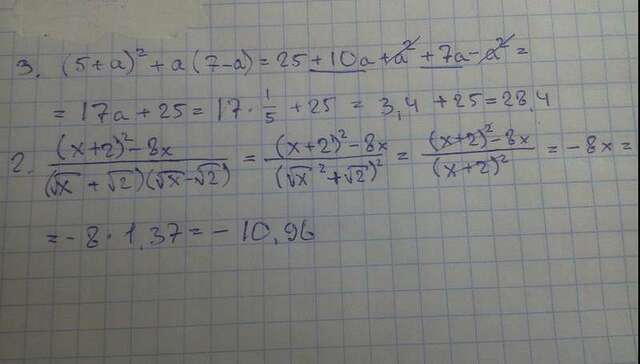 3. (5+a)² + a(7-a) = 25 + 10a + a² + 7a - a² =
= 17a + 25 = 17 · 1/5 + 25 = 3,4 + 25 = 28,4
2. ((x+2)² - 8x)/((√x + √2)(√x - √2)) = ((x+2)² - 8x)/(√x² + √2)² = ((x+2)² - 8x)/(x+2)² = -8x =
= -8 · 1,37 = -10,96